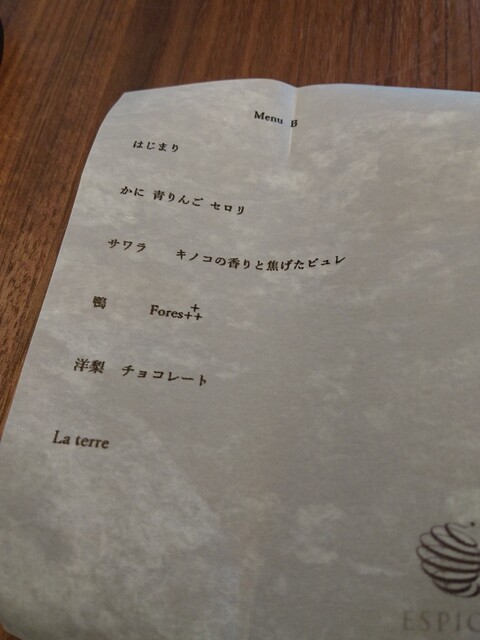 Menu B
はじまり
かに 青りんご セロリ
サワラ キノコの香りと焦げたピュレ
鴨 Fores‡
洋梨 チョコレート
La terre